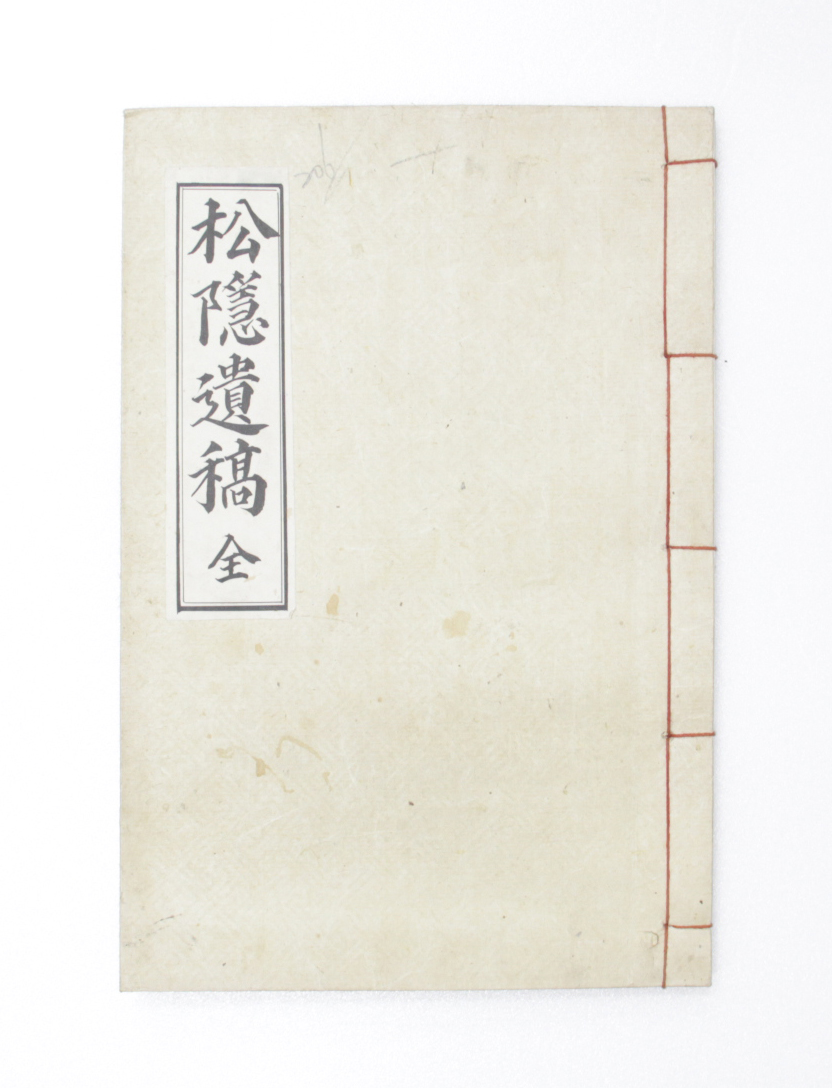 松隱遺稿 全